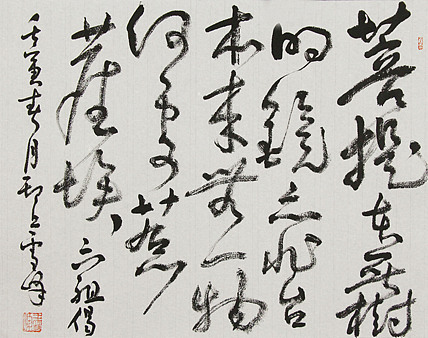 菩提本无樹
明鏡亦非台
本来無一物
何处惹
塵埃 六祖偈
壬寅春月 雪峰